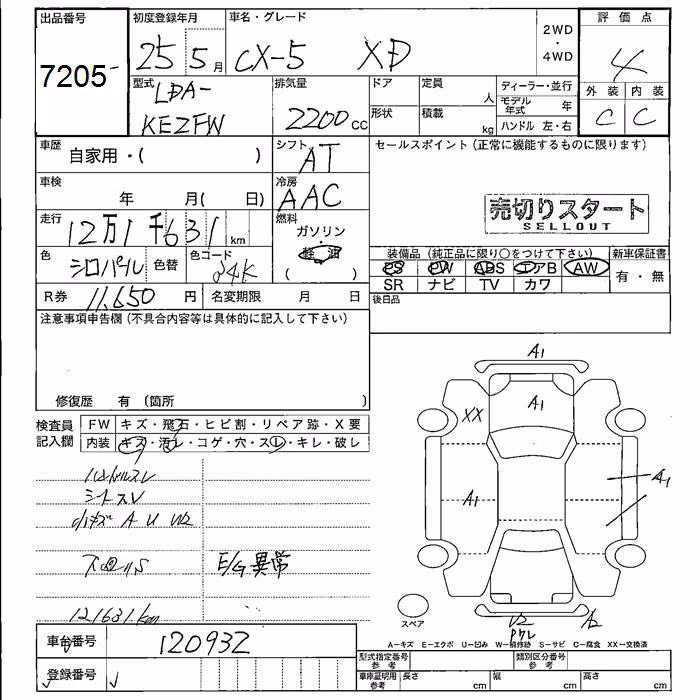 出品番号 初度登録年月 車名・グレード 評価点
7205 25 5月 CX-5 XD 2WD・4WD 4
型式 排気量 ドア 定員 人 ディーラー・並行 外装 内装
LDA- モデル年式 年 C C
KE2FW 2200cc 形状 積載 kg ハンドル 左・右
車歴 自家用・( ) シフト AT セールスポイント(正常に機能するものに限ります)
車検 年 月( 日) 冷房 AAC
売切りスタート
SELLOUT
走行 12万1千631km 燃料 ガソリン
軽油
( )
色 シロパール 色替 色コード 34K
装備品(純正品に限り○をつけて下さい) 新車保証書
PS PW ABS エアB AW 有・無
SR ナビ TV カワ
R券 11,650円 名変期限 月 日 後日品
注意事項申告欄(不具合内容等は具体的に記入して下さい)
修復歴 有(箇所 )
検査員記入欄 FW キズ・飛石・ヒビ割・リペア跡・X要
内装 キズ・汚レ・コゲ・穴・スレ・キレ・破レ
A1
A1
XX
A1
A1
ハンドルスレ
シートスレ
小キズ A U W2
E/G異常
121631km
スペア
A2
A-キズ E-エクボ U-凹み W-補修跡 S-サビ C-腐食 XX-交換済
車台番号 120932
登録番号
型式指定番号 参考 類別区分番号 参考
車庫証明用 参考 長さ cm 幅 cm 高さ cm